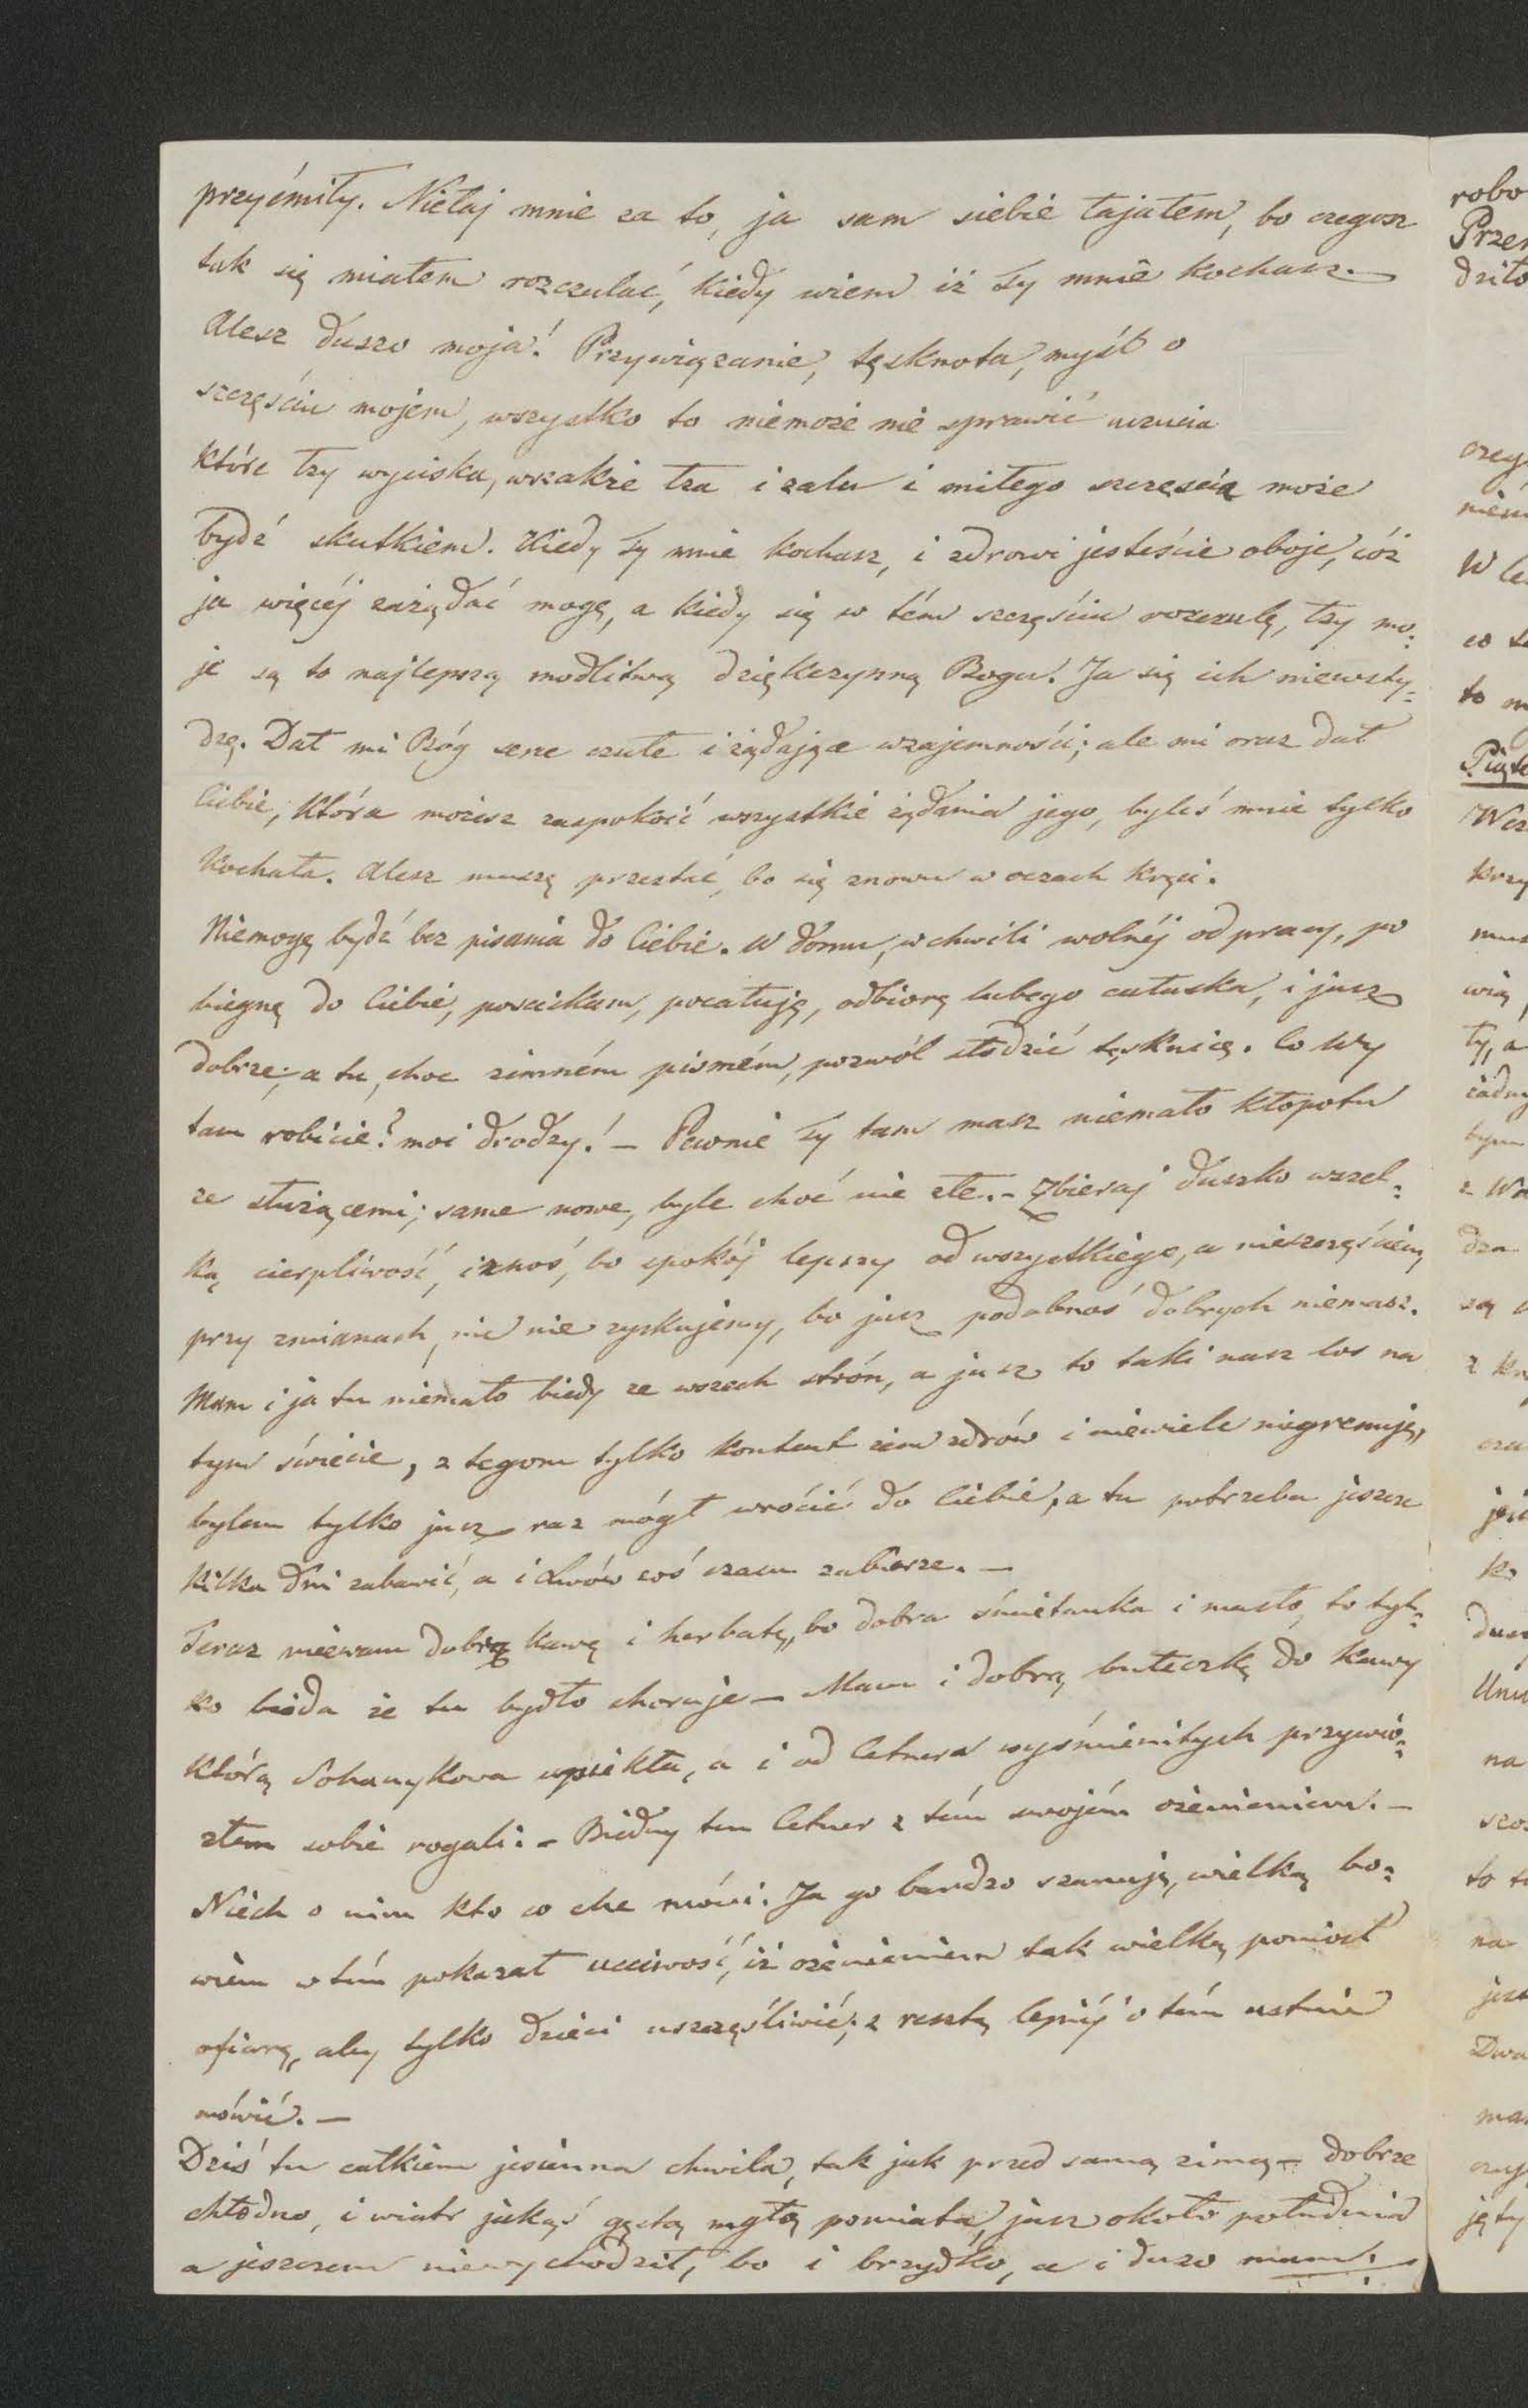 przyćmiły. Niełaj mnie za to, ja sam siebie łajałem, bo czegosz
tak się miałem rozczulać, kiedy wiem iż Ty mnie kochasz. —
Alesz Duszo moja! Przywiązanie, tęsknota, myśl o
szczęściu mojem, wszystko to niemoże nie sprawić uczucia
które łzy wyciska, wszakże łza i żalu i miłego szczęścia może
bydź skutkiem. Kiedy Ty mnie kochasz, i zdrowi jesteście oboje, cóż
ja więcéj zażądać mogę, a kiedy się w tém szczęściu rozczulę, łzy mo=
je są to najlepszą modlitwą dziękczynną Bogu! Ja się ich niewsty=
dzę. Dał mi Bóg serce czułe i żądające wzajemności; ale mi oraz dał
Ciebie, która możesz zaspokoić wszystkie żądania jego, byleś mnie tylko
Kochała. Alesz muszę przestać, bo się znowu w oczach kręci.
Niemogę bydź bez pisania do Ciebie. W domu, w chwili wolnéj od pracy, po
biegnę do Ciebie, pościskam, pocałuję, odbiorę lubego całuska, i jusz
dobrze; a tu, choc zimném pismém, pozwól słodzić tęsknicę. Co Wy
tam robicie? moi drodzy! — Pewnie Ty tam masz niemało kłopotu
ze służącemi; same nowe, byle choć nie złe. — Zbieraj duszko wszel=
ką cierpliwość, i znoś, bo spokój lepszy od wszystkiego, a nieszczęściem,
przy zmianach, nic nie zyskujemy, bo jusz podobnoś dobrych niemasz.
Mam i ja tu niemało biedy ze wszech strón, a jusz to taki nasz los na
tym świecie, z tegom tylko kontent żem zdrów i niewiele
bylem tylko jusz raz mógł wrócić do Ciebie, a tu potrzeba jeszcze
kilka dni zabawić, a i Lwów coś czasu zabierze. —
Teraz miewam dobrą kawę i herbatę, bo dobra śmietanka i masło, to tyl=
ko bieda że tu bydło choruje — Mam i dobrą bułeczkę do kawy
którą Sohanykowa upiekła, a i od Cetnera wyśmienitych przywio=
złem sobie rogali. — Biedny ten Cetner z tém swojém ożenieniem. —
Niech o nim kto co chce mówi. Ja go bardzo szanuję, wielką bo=
wiem w tém pokazał ucciwość, iż ożenieniem tak wielką poniosł
ofiarę, aby tylko dzieci uszczęśliwić; z resztą lepiéj o tém ustnie
mówić. —
Dziś tu całkiem jesienna chwila, tak jak przed samą zimą — dobrze
chłodno, i wiatr jakąś gęstą mgłą pomiata, jusz około południa
a jeszczem niewychodził, bo i brzydko, a i dużo mam
robo
Przer
dziło
czeg
W le
co t
to m
Piąte
Wcz
krzy
mus
wią,
ty, a
żadny
bym
z Wa
dza
są
z kr
cza
ko
dusz
Unu
na
szos
to t
na
jest
Dwa
ma
czy
jęty